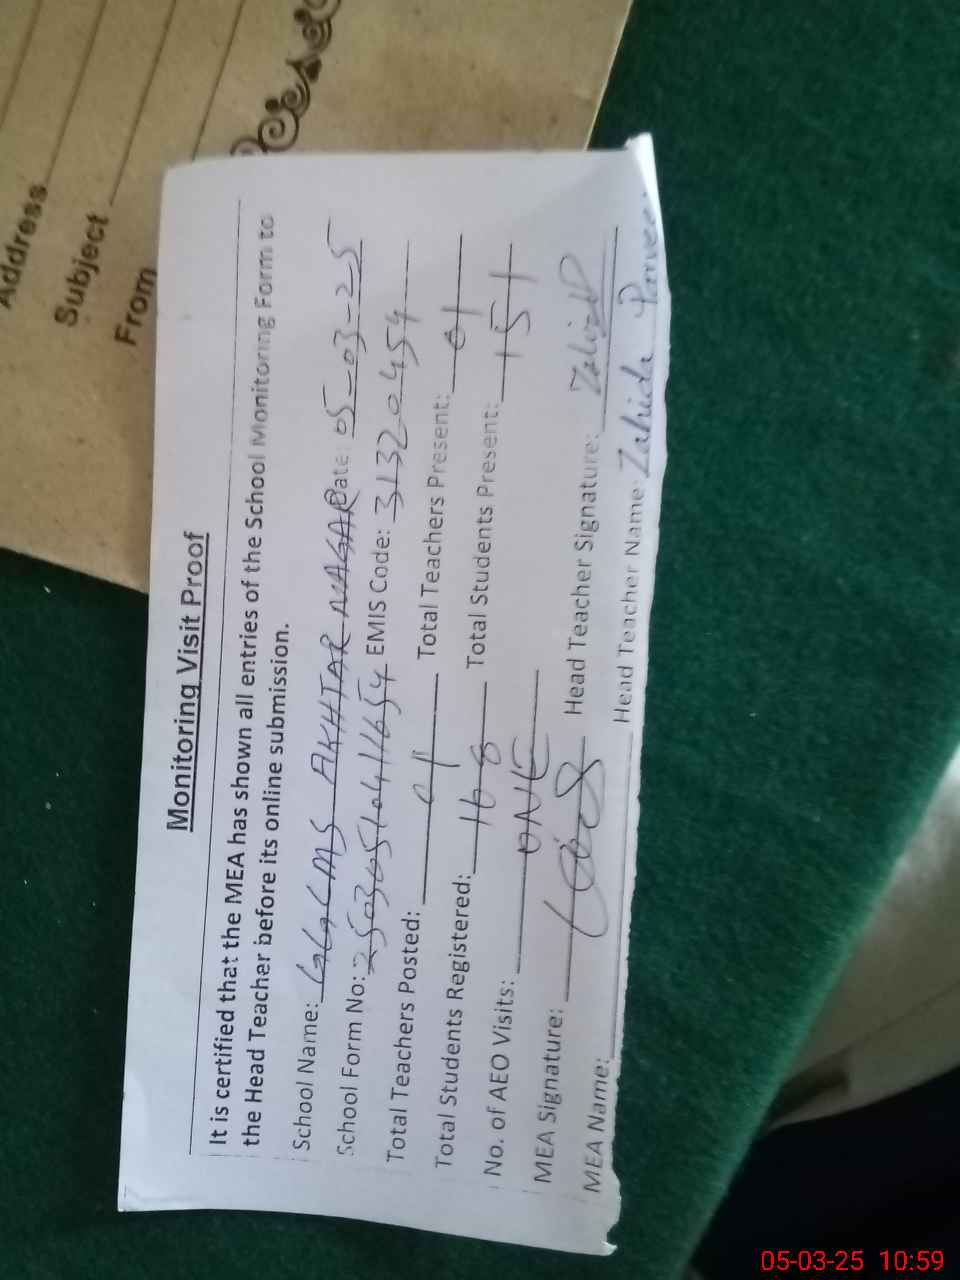 Address
Subject
From
Monitoring Visit Proof
It is certified that the MEA has shown all entries of the School Monitoring Form to
the Head Teacher before its online submission.
School Name: GGCMS AKHTAR NAGAR Date: 05-03-25
School Form No: EMIS Code: 31320454
Total Teachers Posted: 01 Total Teachers Present: 01
Total Students Registered: 168 Total Students Present: 151
No. of AEO Visits: ONE
MEA Signature: Head Teacher Signature: Zahida
MEA Name: Head Teacher Name: Zahida Parveen
05-03-25 10:59